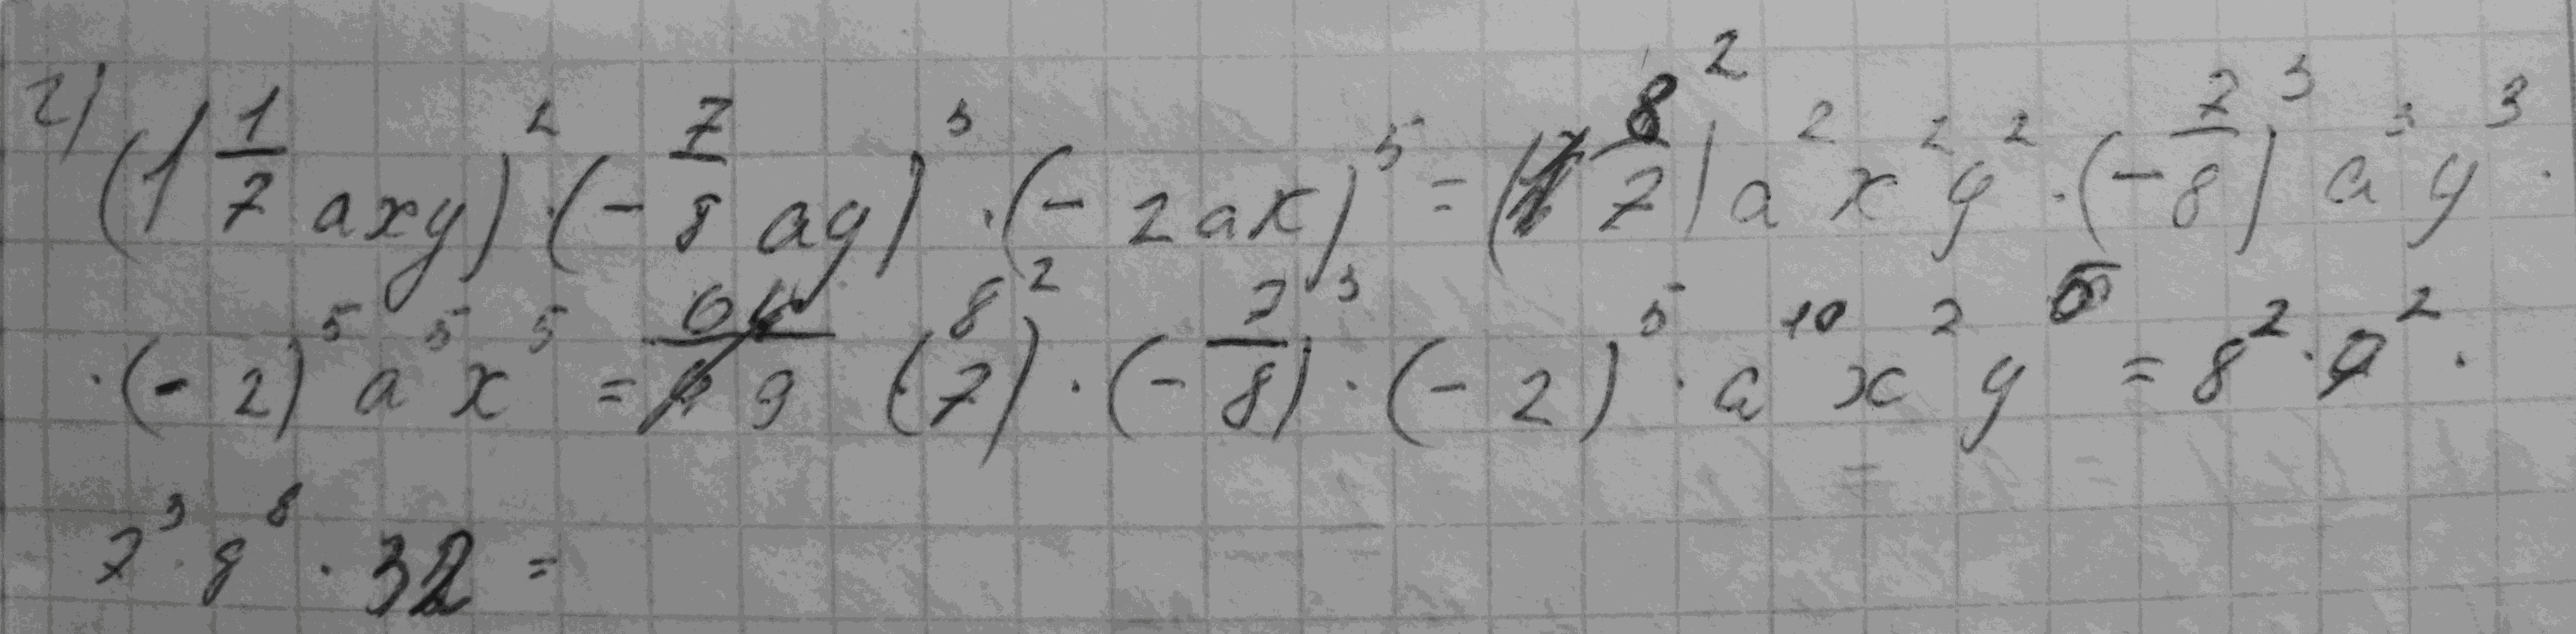 г) (1 1/7 axy)² · (- 7/8 ay)³ · (- 2ax)⁵ = (8/7)² a² x² y² · (- 7/8)³ a³ y³ ·
· (- 2)⁵ a⁵ x⁵ = (8/7)² · (- 7/8)³ · (- 2)⁵ · a¹⁰ x⁷ y⁵ = 8² · 7² ·
7³ · 8⁸ · 32 =